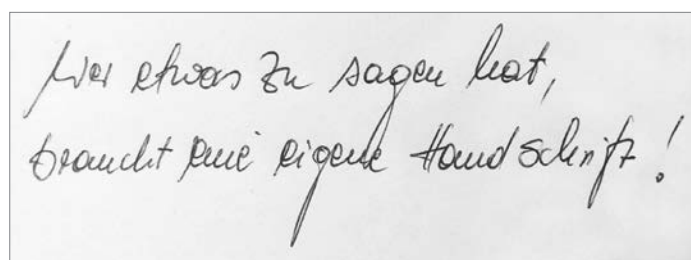 Wer etwas zu sagen hat,
braucht eine eigene Handschrift!